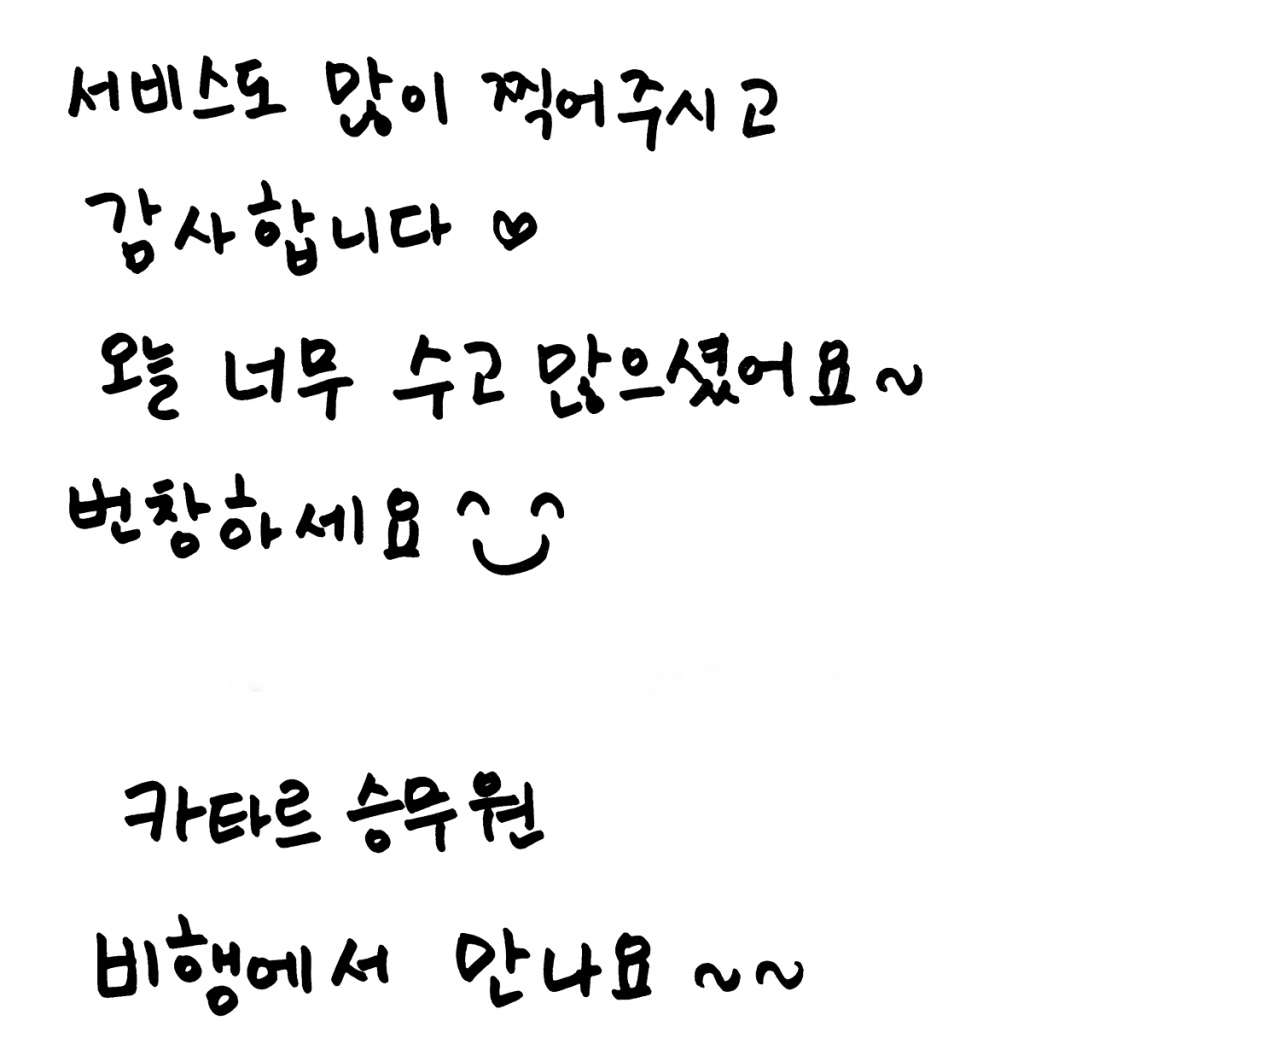 서비스도 많이 찍어주시고
감사합니다 ♡
오늘 너무 수고 많으셨어요~
번창하세요 ^‿^
카타르 승무원
비행에서 만나요 ~~